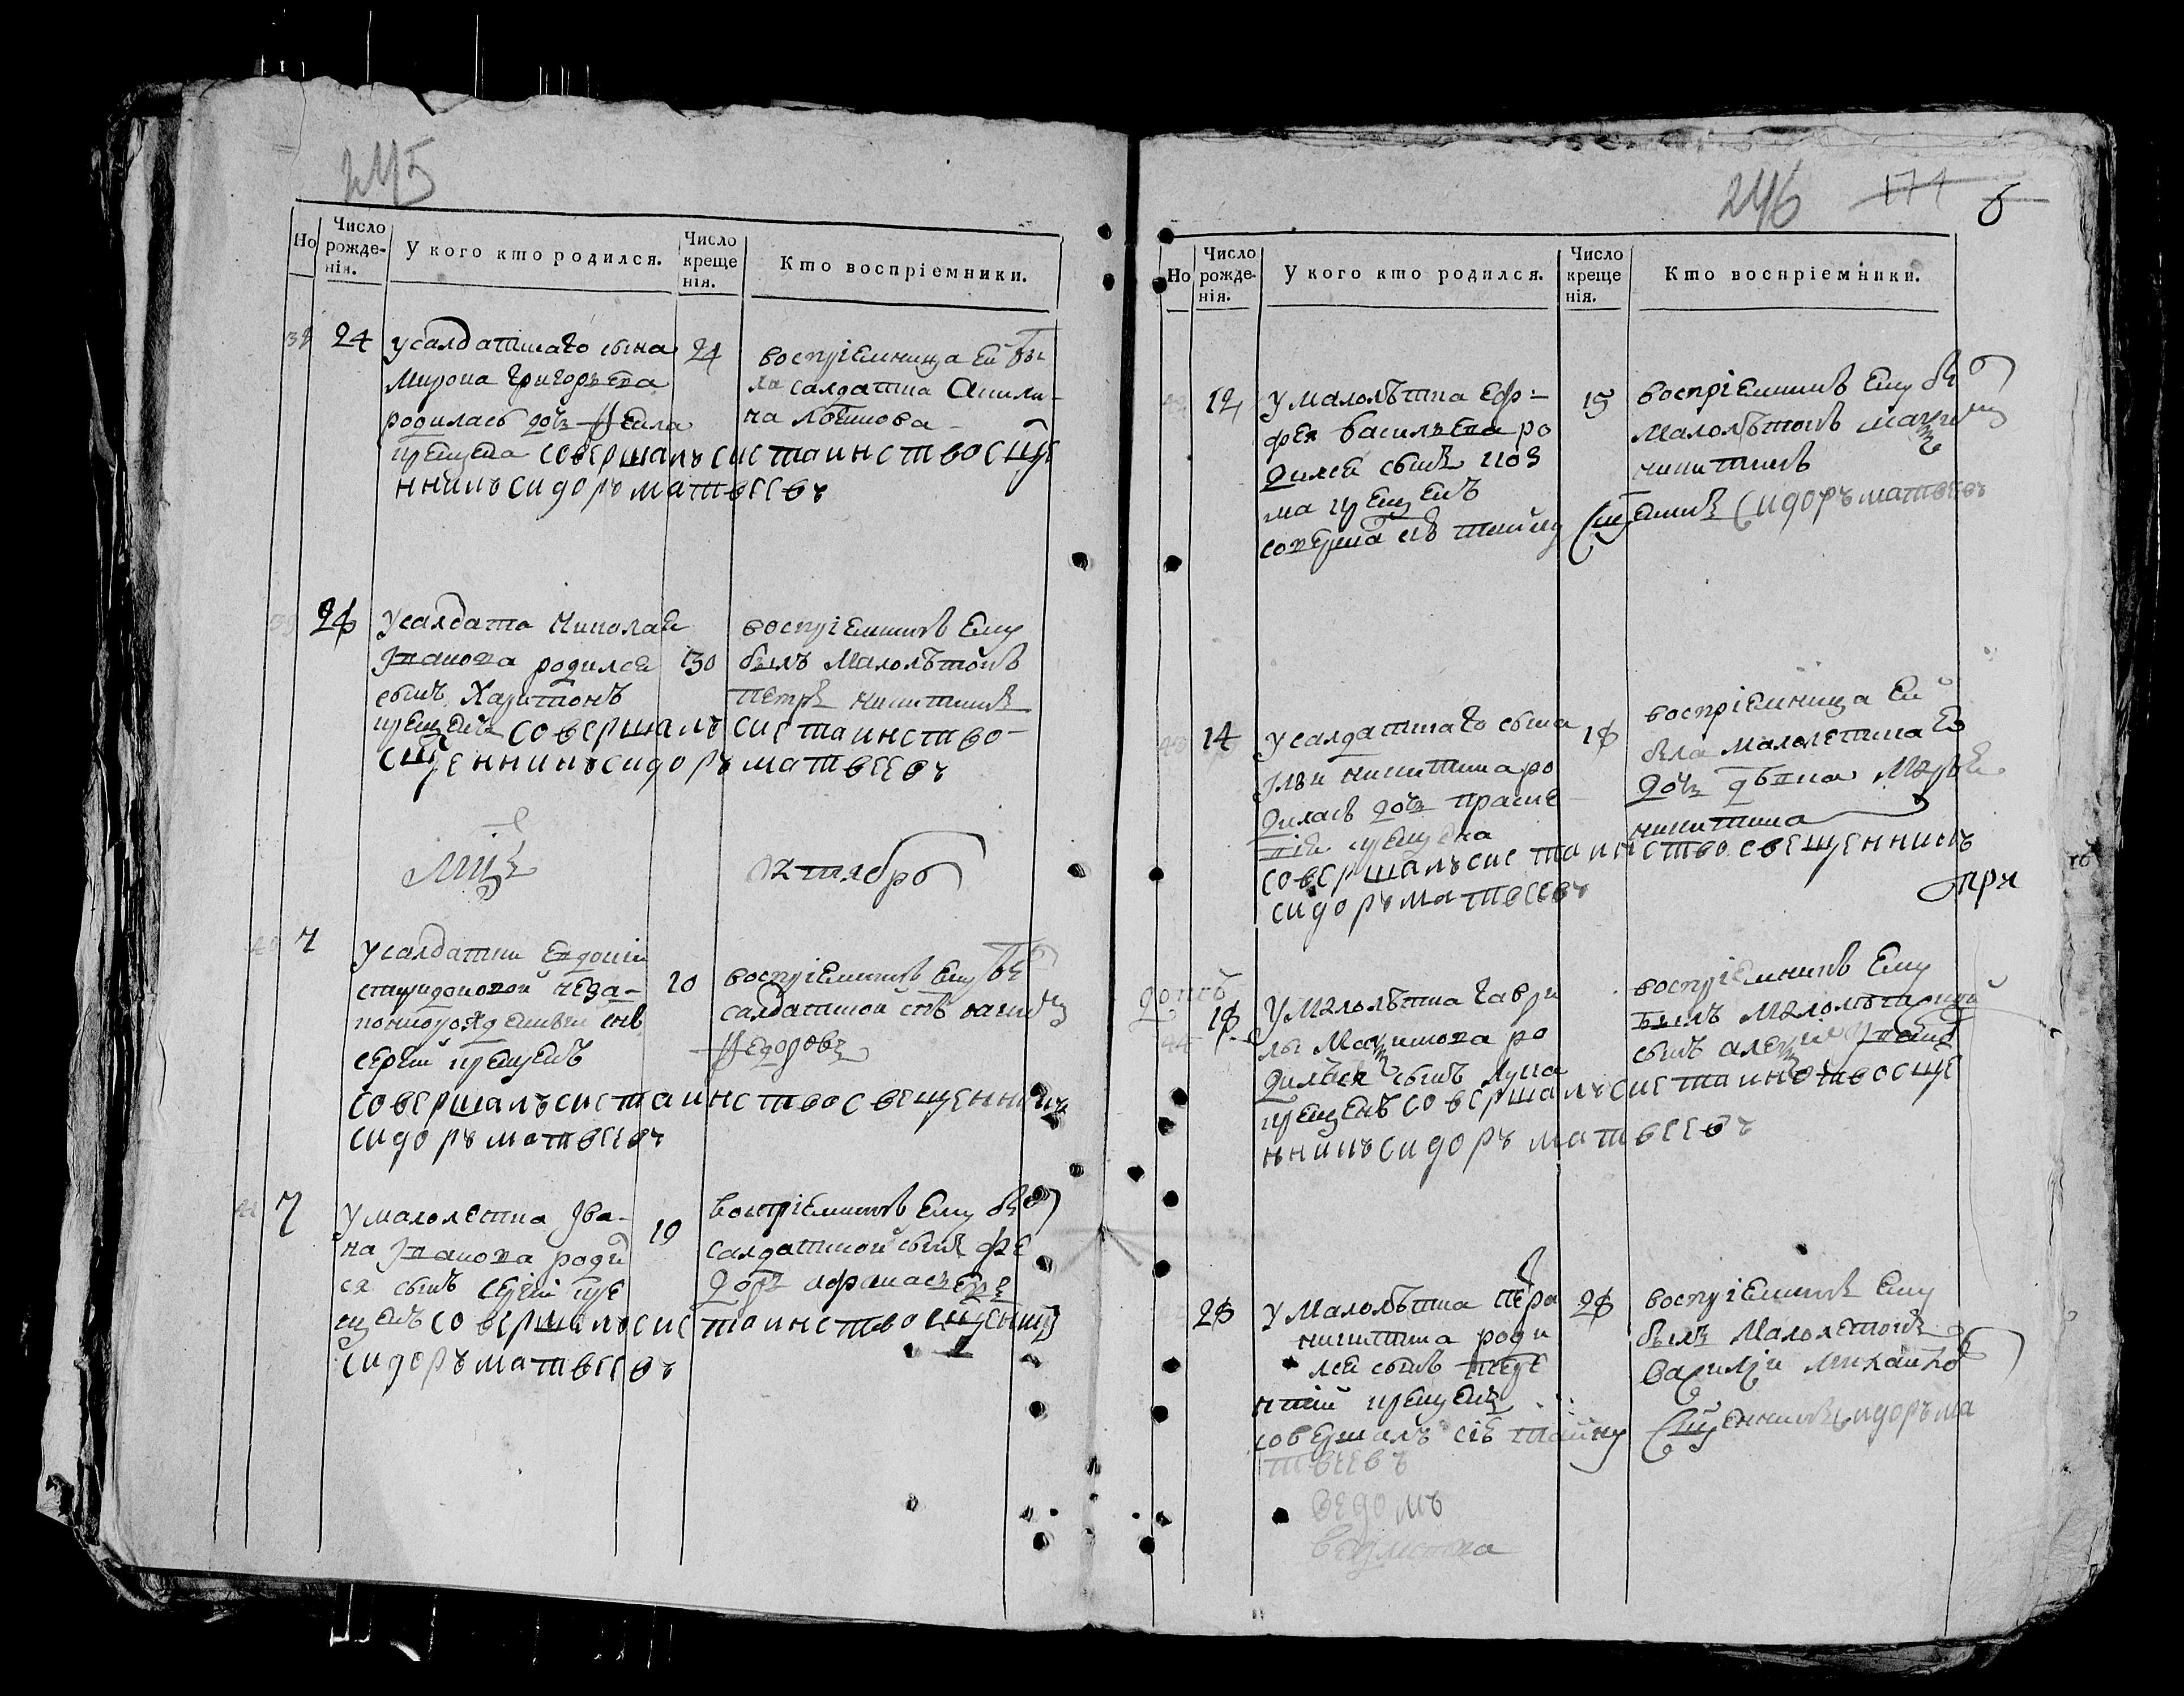 245
Но
Число рожде-нія.
У кого кто родился.
Число креще нія.
Кто воспріемники.
38 24 усалдатскаго сына 24
Мирона григорьева
родилась дочь Фекла
крещена совершалъ сие таинство свще
нникъ сидоръ матвеевъ
воспріемница ей бы
ла салдатка Акили-
на логинова
26 усалдата Николая
Iванова родился 30
сынъ Харитонъ
крещенъ совершалъ сие таинство
сщенникъ сидоръ матвеевъ
воспріемникъ ему
былъ малолѣтокъ
петръ никитинъ
мцъ октябрь
7 усалдатки Евдокии
спиридоновой неза-
коннорожденный снъ
сергий крещенъ
совершалъ сие таинство свещенникъ
сидоръ матвеевъ
10 воспріемникъ ему бы
салдатской снъ
Федоровъ
7 у малолетка Iва-
на Iванова роди
ся сынъ сергiй кре
щенъ совершалъ сие таинство свщенни
сидоръ матвеевъ
10 воспріемникъ ему бы
салдатской сынъ фе
доръ афанасьевъ
246 171 6
Но
Число рожде-нія.
У кого кто родился.
Число креще нія.
Кто воспріемники.
12 у малолѣтка Ефр-
фея васильева ро
дился сынъ коз
ма крещенъ
совершалъ сiю тайну сщенникъ сидоръ матвеевъ
15 воспріемникъ ему бы
малолѣтокъ
никитинъ
14 у салдатскаго сына 18
Iльи никитина ро
дилась дочь праске
вiя крещена
совершалъ сие таинство свещенникъ
сидоръ матвеевъ
воспріемница ей
была малолетка
дочь дѣвка Марья
никитина
при
18 у малолѣтка гаври
лы Максимова ро
дился сынъ лука
крещенъ совершалъ сие таинство свще
нникъ сидоръ матвеевъ
воспріемникъ ему
былъ малолѣтной
сынъ алексѣи
26 у малолѣтка петра 28
никитина роди
лся сынъ тере
нтiй крещенъ
совершалъ сiю тайну сщенникъ сидоръ ма
твеевъ
воспріемникъ ему
былъ малолетокъ
василiи михаило
ведомъ